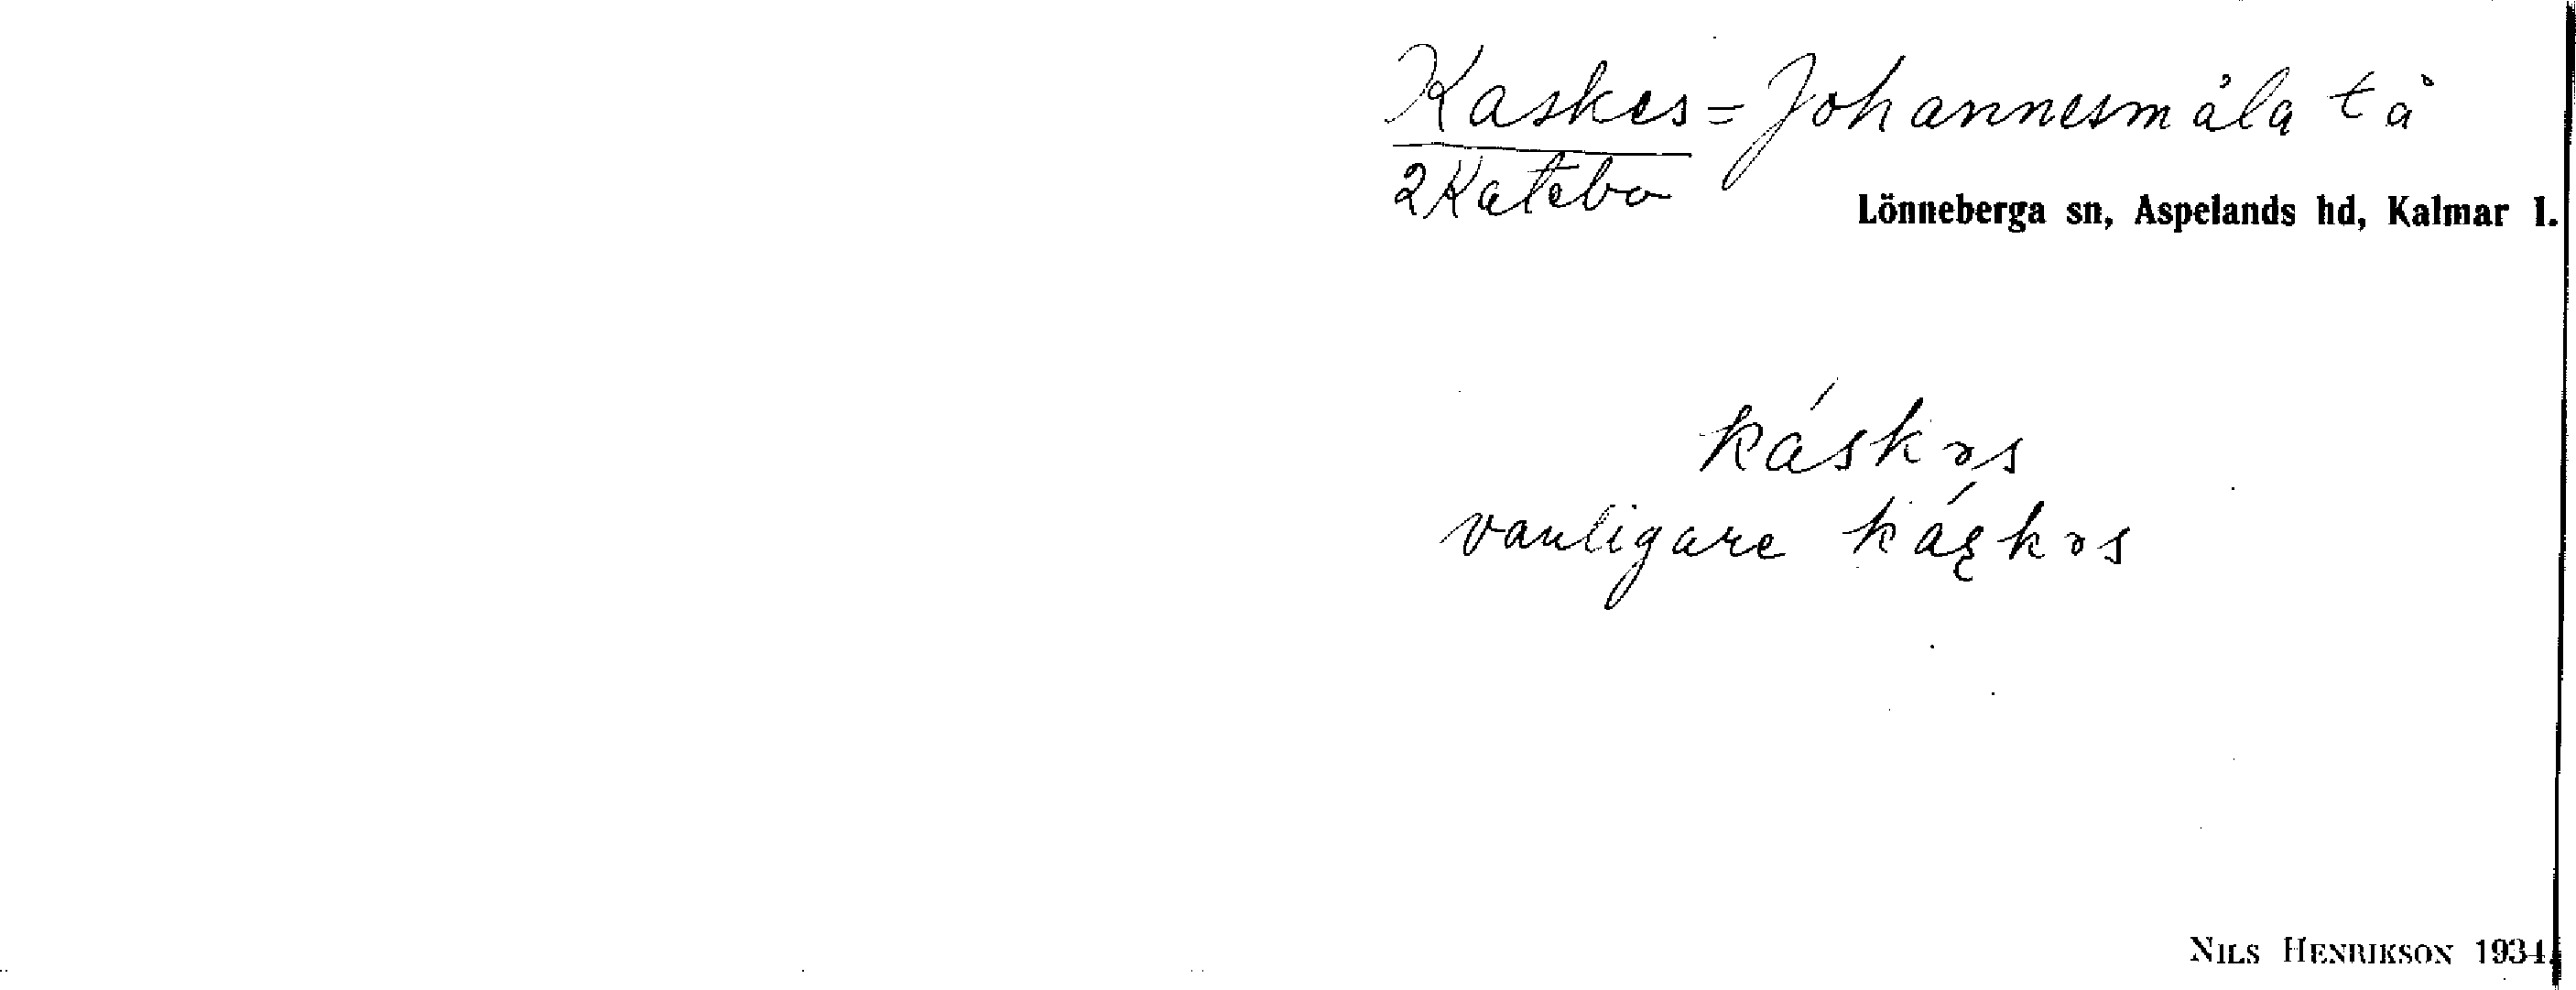 Kaskes = Johannesmåla tå
2 Katebo
Lönneberga sn, Aspelands hd, Kalmar l.
káskəs
vanligare káʂkəs
NILS HENRIKSON 1934.